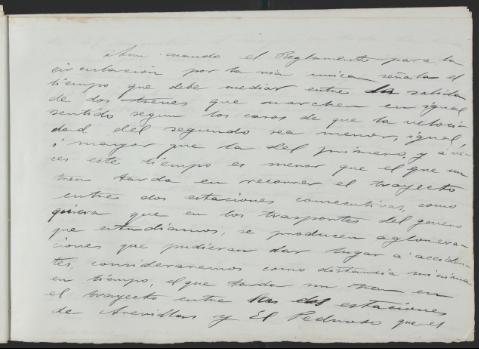 Aun cuando el Reglamento para la
circulación por la via unica señala el
tiempo que debe mediar entre las salidas
de dos trenes que marchen en igual
sentido segun los casos de que la veloci
dad del segundo sea menor, igual,
ó mayor que la del primero, y á ve
ces este tiempo es menor que el que un
tren tarda en recorrer el trayecto
entre dos estaciones consecutivas, como
quiera que en los trasportes del genero
que estudiamos, se producen aglomera
ciones que pudieran dar lugar a acciden
tes, consideraremos como distancia minima
en tiempo, el que tarda un tren en
el trayecto entre las dos estaciones
de Arenillas y El Pedroso que es